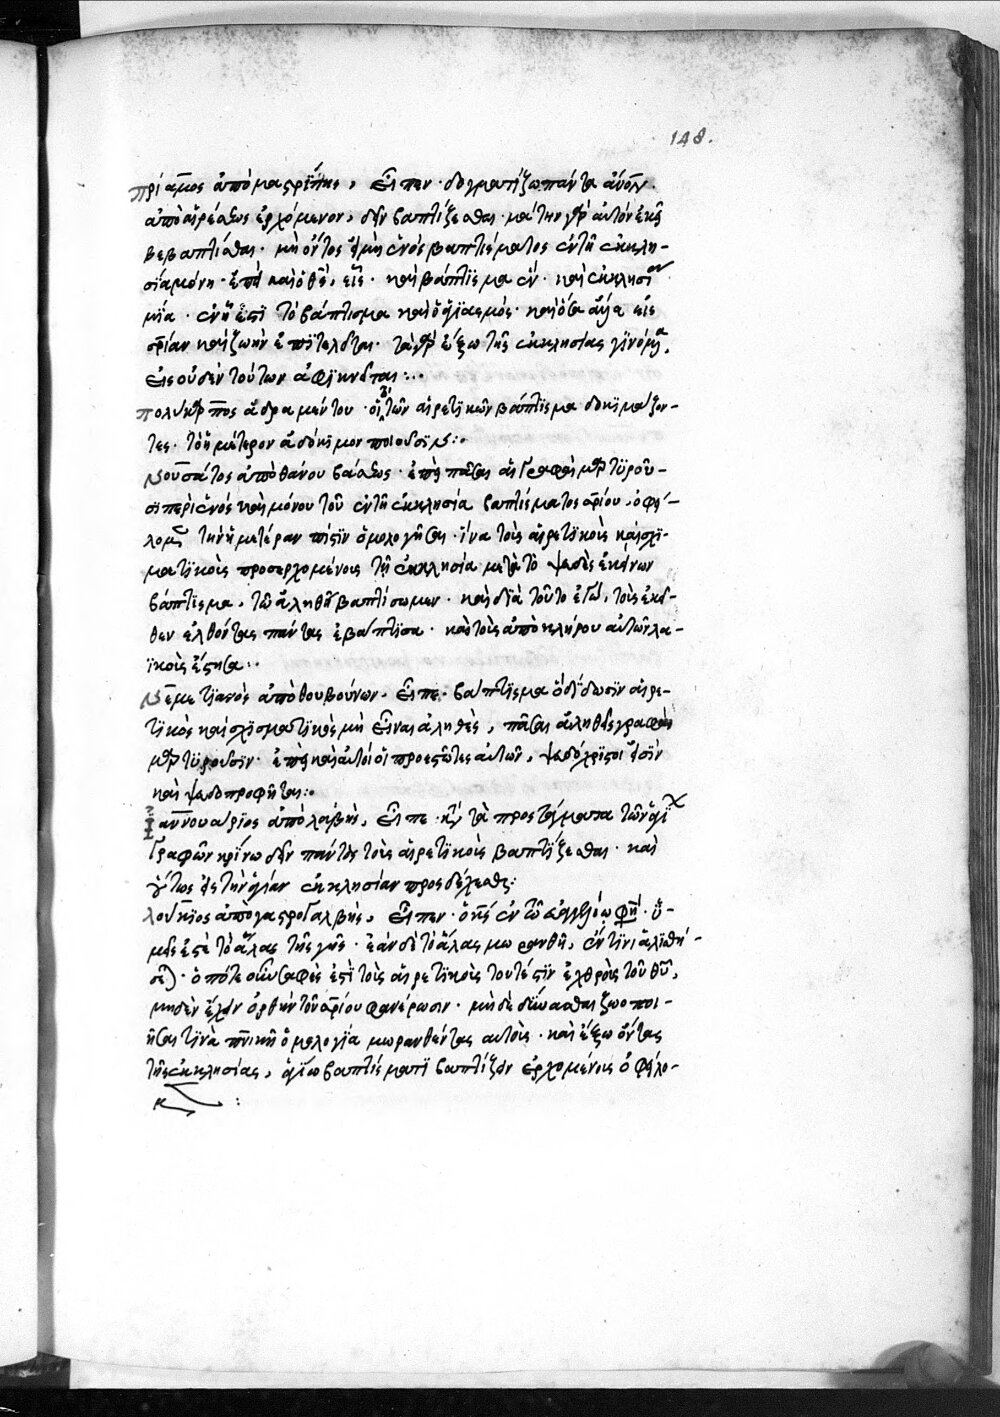 148.
πρίαμος ἀπὸ μασρίπης, εἶπεν· δογματίζω πάντα ἄνον
ἀπὸ αἱρέσεως ἐρχόμενον, δεῖν βαπτίζεσθαι· μάτην γὰρ αὐτὸν ἐκεῖ
βεβαπτίσθαι· μὴ ὄντος εἰ μὴ ἑνὸς βαπτίσματος ἐν τῆ ἐκκλη-
σία μόνη· ἐπεὶ καὶ ὁ θς, εἷς· καὶ βάπτισμα ἕν· καὶ ἐκκλησία
μία· ἐν ἧ ἐστὶ τὸ βάπτισμα καὶ ὁ ἁγιασμός· καὶ ὅσα
σρίαν καὶ ζωὴν ἐπιτελεῖται· τὰ γὰρ ἔξω τῆς ἐκκλησίας γινόμενα,
εἰς οὐδὲν τούτων ἀφικνεῖται:
πολύκαρπος ἀδραμέντου· οἱ τῶν αἱρετικῶν βάπτισμα δοκιμάζον-
τες· τὸ ἡμέτερον ἀδόκιμον ποιοῦσιν:
νουσάτος ἀπὸ θανουβαίσεως· ἐπεὶ πᾶσαι αἱ γραφαὶ μαρτυροῦ-
σι περὶ ἑνὸς καὶ μόνου τοῦ ἐν τῆ ἐκκλησία βαπτίσματος σρίου, ὀφεί-
λομεν τὴν ἡμετέραν πίστιν ὁμολογῆσαι· ἵνα τοὺς αἱρετικοὺς καὶ σχι-
ματικοὺς προσερχομένους τῆ ἐκκλησία μετὰ τὸ ψευδὲς ἐκείνων
βάπτισμα, τῶ ἀληθεῖ βαπτίσωμεν· καὶ διὰ τοῦτο ἐγώ, τοὺς ἐκεῖ-
θεν ἐλθόντας πάντας ἐβάπτισα· καὶ τοὺς ἀπὸ κλήρου αὐτῶν λα-
ϊκοὺς ἔστησα:
νεμετιανὸς ἀπὸ θουβούνων· εἶπε· βάπτισμα ὃ διδῶσιν αἱρε-
τικὸς καὶ σχισματικὸς μὴ εἶναι ἀληθὲς, πᾶσαι αἱ γραφαὶ
μαρτυροῦσιν· ἐπεὶ καὶ αὐτοὶ οἱ προεστῶτες αὐτῶν, ψευδόχριστοι εἰσὶν
καὶ ψευδοπροφῆται:
ἰαννουάριος ἀπὸ λαβῆς, εἶπε· κατὰ τὰ προστάγματα τῶν ἁγίων
γραφῶν κρίνω δεῖν πάντας τοὺς αἱρετικοὺς βαπτίζεσθαι· καὶ
οὕτως εἰς τὴν ἁγίαν ἐκκλησίαν προσδέχεσθαι:
λούκιος ἀπὸ γαστρογάλβης, εἶπεν· ὁ κς ἐν τῶ εὐαγγελίω φησί· ὑ-
μεῖς ἐστὲ τὸ ἅλας τῆς γῆς· ἐὰν δὲ τὸ ἅλας μωρανθῆ, ἐν τίνι ἁλισθή-
σεται· ὁπότε οὖν σαφὲς ἐστὶ τοὺς αἱρετικοὺς τουτέστιν ἐχθροὺς τοῦ θυ,
μηδὲν ἔχειν ὀρθὴν τοῦ σρίου φανέρωσιν· μηδὲ δύνασθαι ζωοποι-
ῆσαι τινὰ πνικῆ ὁμολογία μωρανθέντας αὐτοὺς· καὶ ἔξω ὄντας
τῆς ἐκκλησίας, ἁγίω βαπτίσματι βαπτίζειν ἐρχομένους ὀφείλο-
μεν: